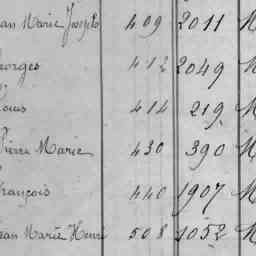 ean Marie Joseph 409 2011 M
eorges 412 2049 M
ouis 414 219 M
ierre Marie 430 390 M
rançois 440 1907 M
ean Marie Henri 508 1052 M